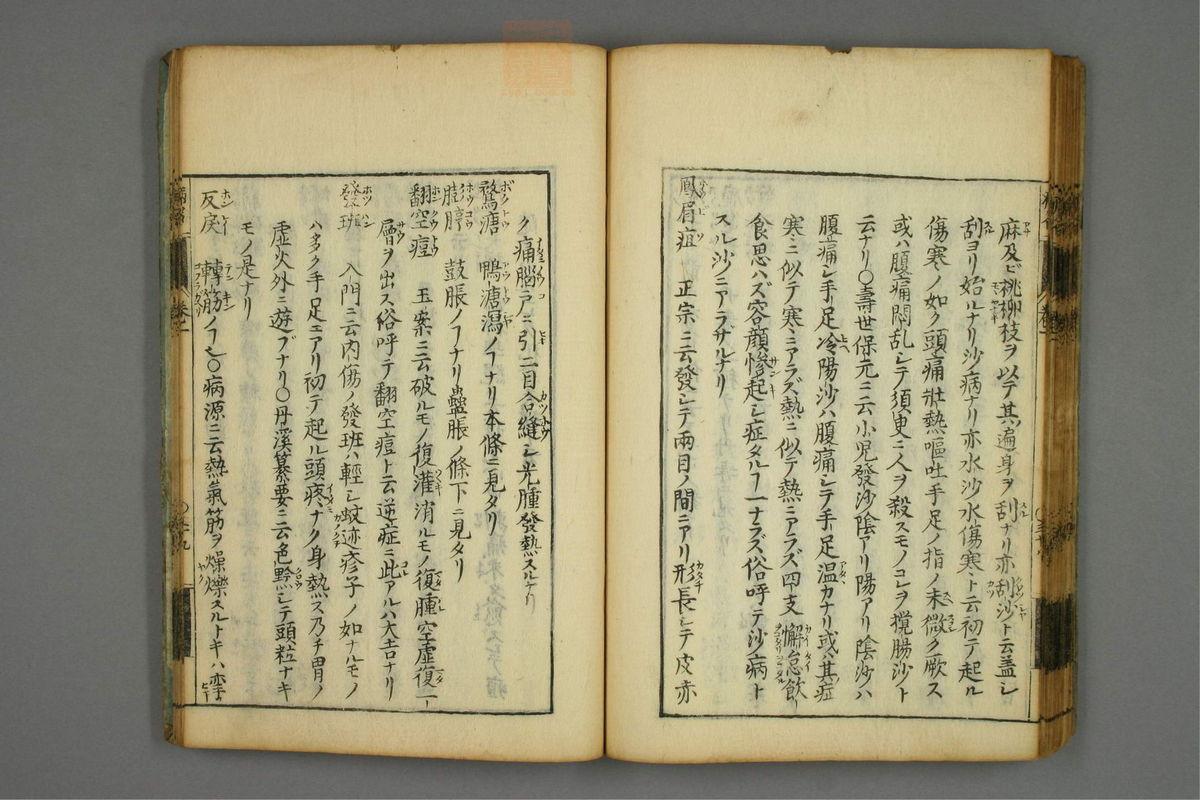 麻及ビ桃柳枝ヲ以テ其遍身ヲ刮ナリ亦刮沙ト云蓋シ
刮ヨリ始ルナリ沙病ナリ亦水沙水傷寒ト云初テ起ル
傷寒ノ如ク頭痛壯熱嘔吐手足ノ指ノ末微ク厥ス
或ハ腹痛悶乱シテ須臾ニ人ヲ殺スモノコレヲ攪腸沙ト
云ナリ〇壽世保元ニ云小児發沙陰アリ陽アリ陰沙ハ
腹痛シ手足冷陽沙ハ腹痛シテ手足温カナリ或ハ其症
寒ニ似テ寒ニアラズ熱ニ似テ熱ニアラズ四支懈怠飲
食思ハズ容顔惨起シ症タルヿ一ナラズ俗呼テ沙病ト
スル沙ニアラザルナリ
鳳眉疽 正宗ニ云發シテ兩目ノ間ニアリ形長シテ皮赤
ク痛腦戸ニ引二目合縫シ光腫發熱スルナリ
鶩溏 鴨溏瀉ノヿナリ本條ニ見タリ
鼓脹ノヿナリ蠱脹ノ條下ニ見タリ
翻空痘 玉案ニ云破ルモノ復灌消ルモノ復腫空虚復一
層ヲ出ス俗呼テ翻空痘ト云逆症ニ此アルハ大吉ナリ
發班 入門ニ云内傷ノ發班ハ輕シ蚊迹疹子ノ如ナルモノ
ハ多ク手足ニアリ初テ起ル頭疼ナク身熱ス乃チ胃ノ
虚火外ニ遊ブナリ〇丹溪纂要ニ云色黙シテ頭粒ナキ
モノ是ナリ
反戻 轉筋ノヿ〇病源ニ云熱氣筋ヲ燥爍スルトキハ攣